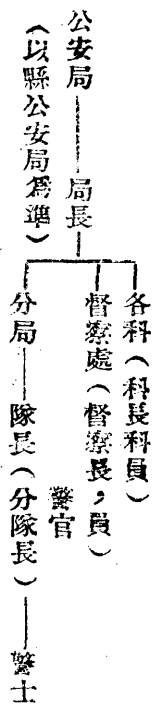 公安局——局長
（以縣公安局爲準）
各科（科長科員）
督察處（督察長，員）
警官
分局——隊長（分隊長）——警士